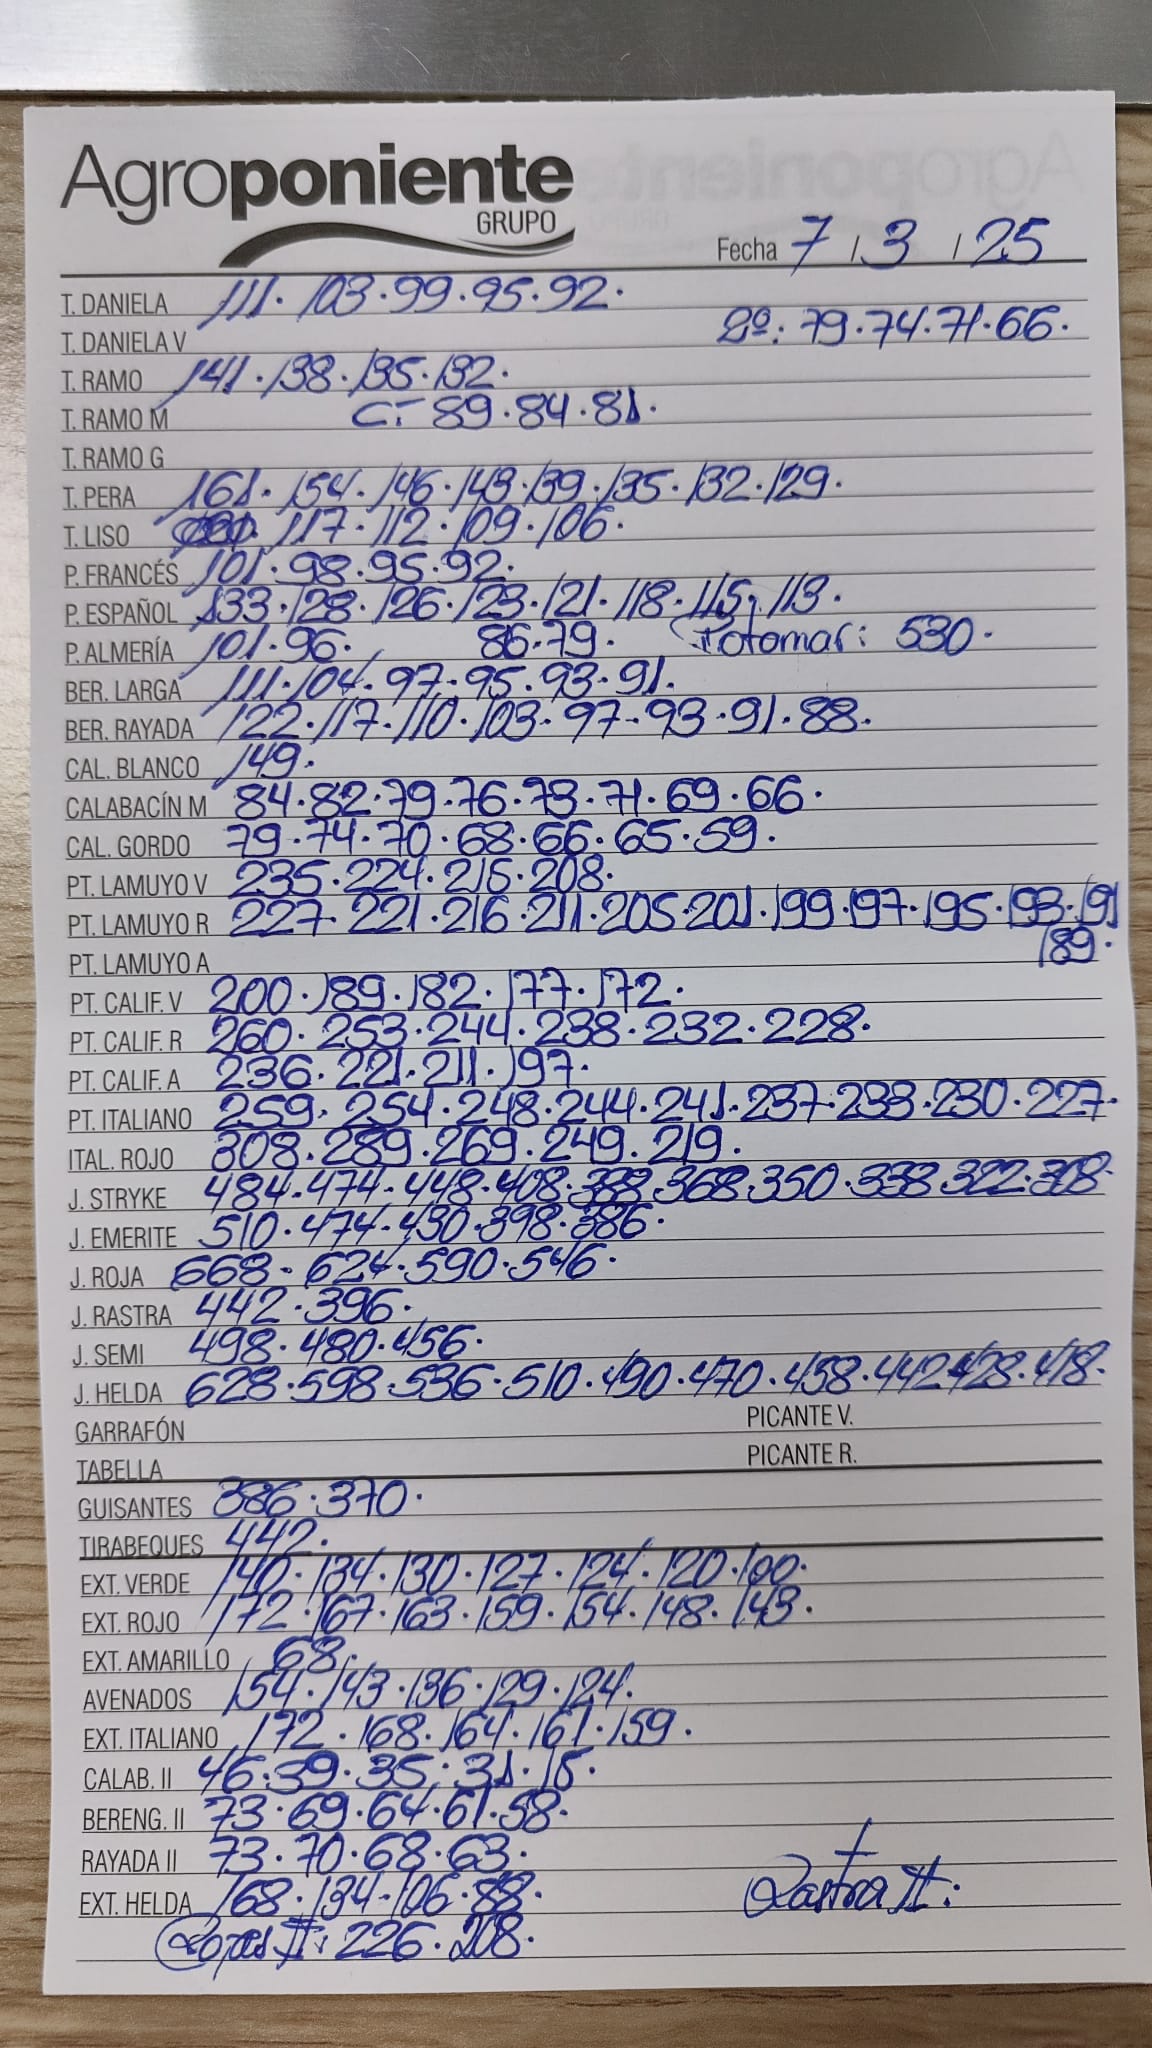 Agroponiente
GRUPO
Fecha 7 / 3 / 25
T. DANIELA 111. 103.99.95.92.
T. DANIELA V 2º: 79.74.71.66.
T. RAMO 141.138.135.132.
T. RAMO M C: 89.84.81.
T. RAMO G
T. PERA 161. 154. 146.143.139.135.132.129.
T. LISO 117.112.109.106.
P. FRANCÉS 101.98.95.92.
P. ESPAÑOL 133.128.126.123.121.118.115.113.
P. ALMERÍA 101.96. 86.79. Totomar: 530.
BER. LARGA 111.104.97.95.93.91.
BER. RAYADA 122.117.110.103.97.93.91.88.
CAL. BLANCO 149.
CALABACÍN M 84.82.79.76.73.71.69.66.
CAL. GORDO 79.74.70.68.66.65.59.
PT. LAMUYO V 235.224.215.208.
PT. LAMUYO R 227.221.216.211.205.201.199.197.195.193.191
PT. LAMUYO A 189.
PT. CALIF. V 200.189.182.177.172.
PT. CALIF. R 260.253.244.238.232.228.
PT. CALIF. A 236.221.211.197.
PT. ITALIANO 259.254.248.244.241.237.233.230.227.
ITAL. ROJO 308.289.269.249.219.
J. STRYKE 484.474.448.408.388.368.350.338.322.308.
J. EMERITE 510.474.430.398.386.
J. ROJA 668.624.590.546.
J. RASTRA 442.396.
J. SEMI 498.480.456.
J. HELDA 628.598.536.510.490.470.458.442.428.418.
GARRAFÓN PICANTE V.
TABELLA PICANTE R.
GUISANTES 386.370.
TIRABEQUES 442.
EXT. VERDE 140.134.130.127.124.120.100.
EXT. ROJO 172.167.163.159.154.148.143.
EXT. AMARILLO 68.
AVENADOS 154.143.136.129.124.
EXT. ITALIANO 172.168.164.161.159.
CALAB. II 46.39.35.31.15.
BERENG. II 73.69.64.61.58.
RAYADA II 73.70.68.63.
EXT. HELDA 168.134.106.88. Rastra II:
Rojas II: 226.208.